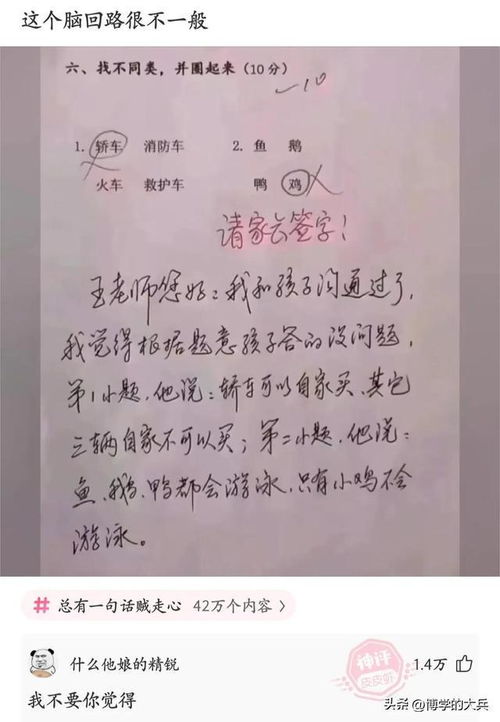 这个脑回路很不一般
六、找不同类，并圈起来（10分）
-10
1. 轿车 消防车 2. 鱼 鹅
火车 救护车 鸭 鸡
请家长签字！
王老师您好：我和孩子沟通过了，
我觉得根据题意孩子答的没问题，
第1小题，他说：轿车可以自家买、其它
三辆自家不可以买；第二小题，他说：
鱼、鹅、鸭都会游泳，只有小鸡不会
游泳。
# 总有一句话贼走心 42万个内容 >
什么他娘的精锐
神评
皮皮虾
1.4万
我不要你觉得
头条 @博学的大兵